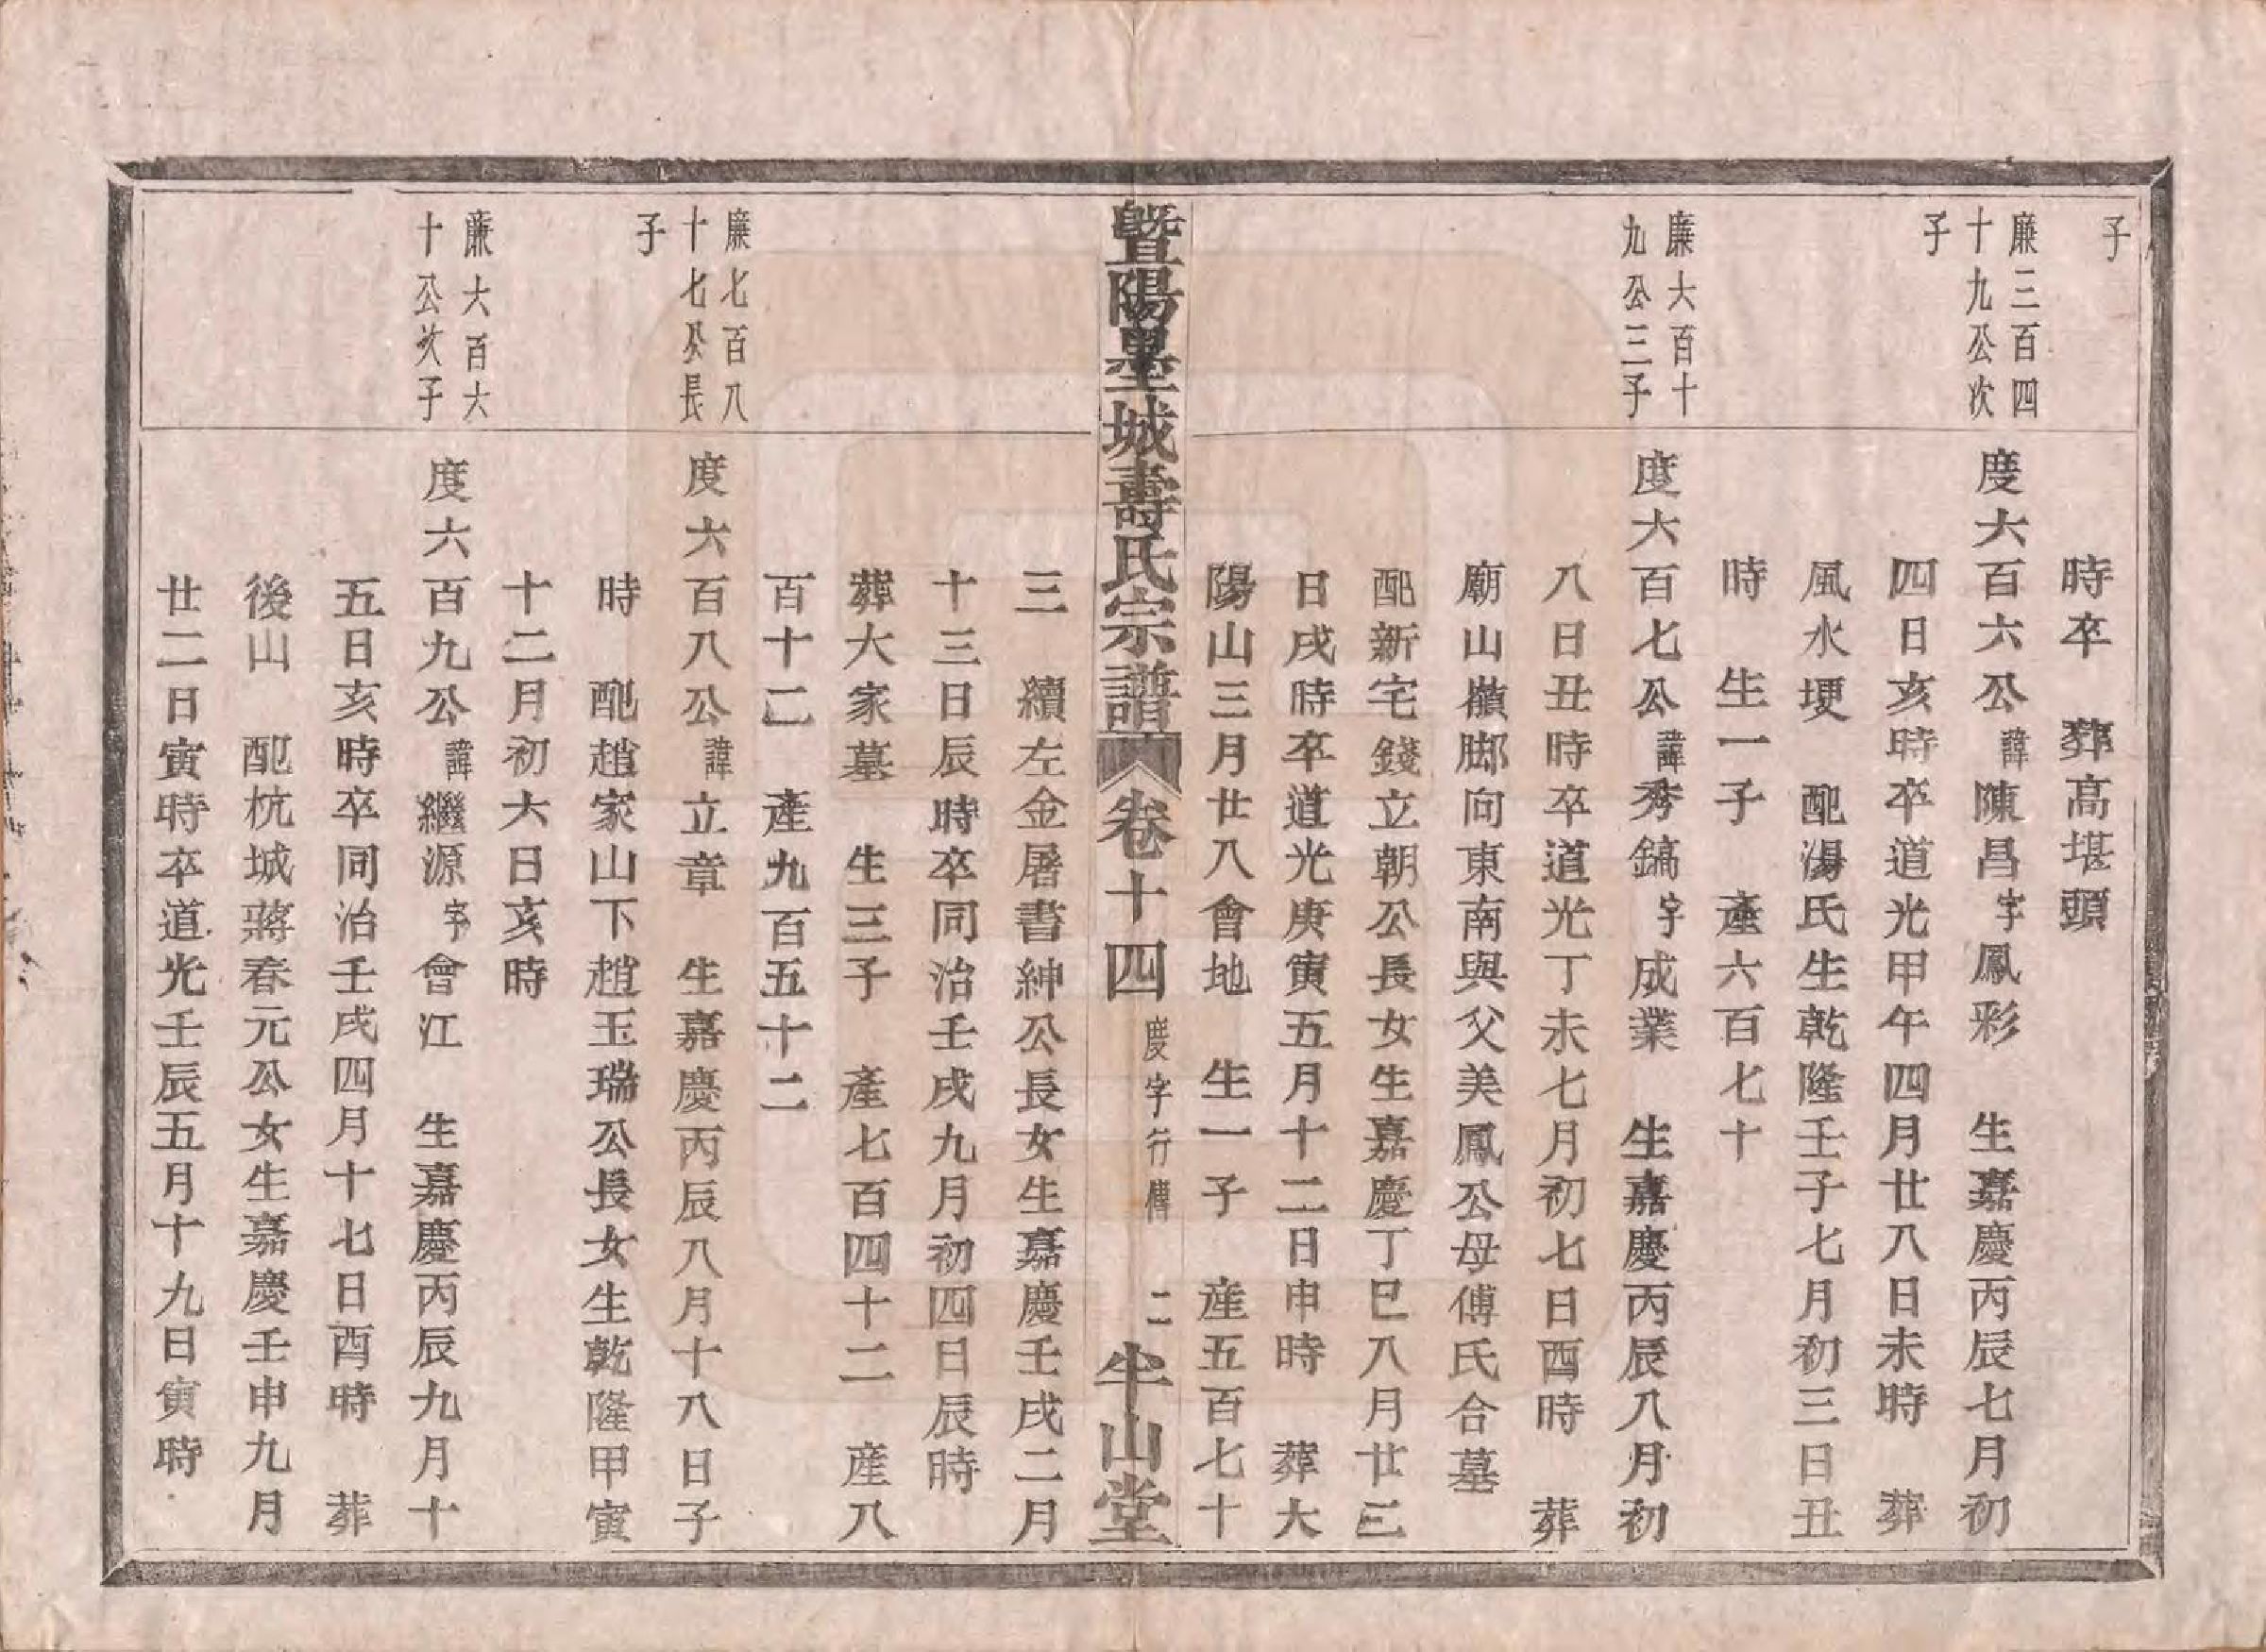 子
時卒　葬高堪頭
廉三百四
十九公次
子
度六百六公諱陳昌字鳳彩　生嘉慶丙辰七月初
四日亥時卒道光甲午四月廿八日未時　葬
風水埂　配湯氏生乾隆壬子七月初三日丑
時　生一子　產六百七十
廉大百十
九公三子
度六百七公諱秀鎬字成業　生嘉慶丙辰八月初
八日丑時卒道光丁未七月初七日酉時　葬
廟山橫脚向東南與父美鳳公母傅氏合墓
配新宅錢立朝公長女生嘉慶丁巳八月廿三
日戌時卒道光庚寅五月十二日申時　葬大
陽山三月廿八會地　生一子　産五百七十
暨陽墨城壽氏宗譜　卷十四　度字行傳　二　半山堂
三　續左金屠書紳公長女生嘉慶壬戌二月
十三日辰時卒同治壬戌九月初四日辰時
葬大家墓　生三子　產七百四十二　産八
百十二　產九百五十二
廉七百八
十七公長
子
度六百八公諱立章　生嘉慶丙辰八月十八日子
時　配趙家山下趙玉瑞公長女生乾隆甲寅
十二月初六日亥時
廉大百六
十公次子
度六百九公諱繼源字會江　生嘉慶丙辰九月十
五日亥時卒同治壬戌四月十七日酉時　葬
後山　配杭城蔣春元公女生嘉慶壬申九月
廿二日寅時卒道光壬辰五月十九日寅時